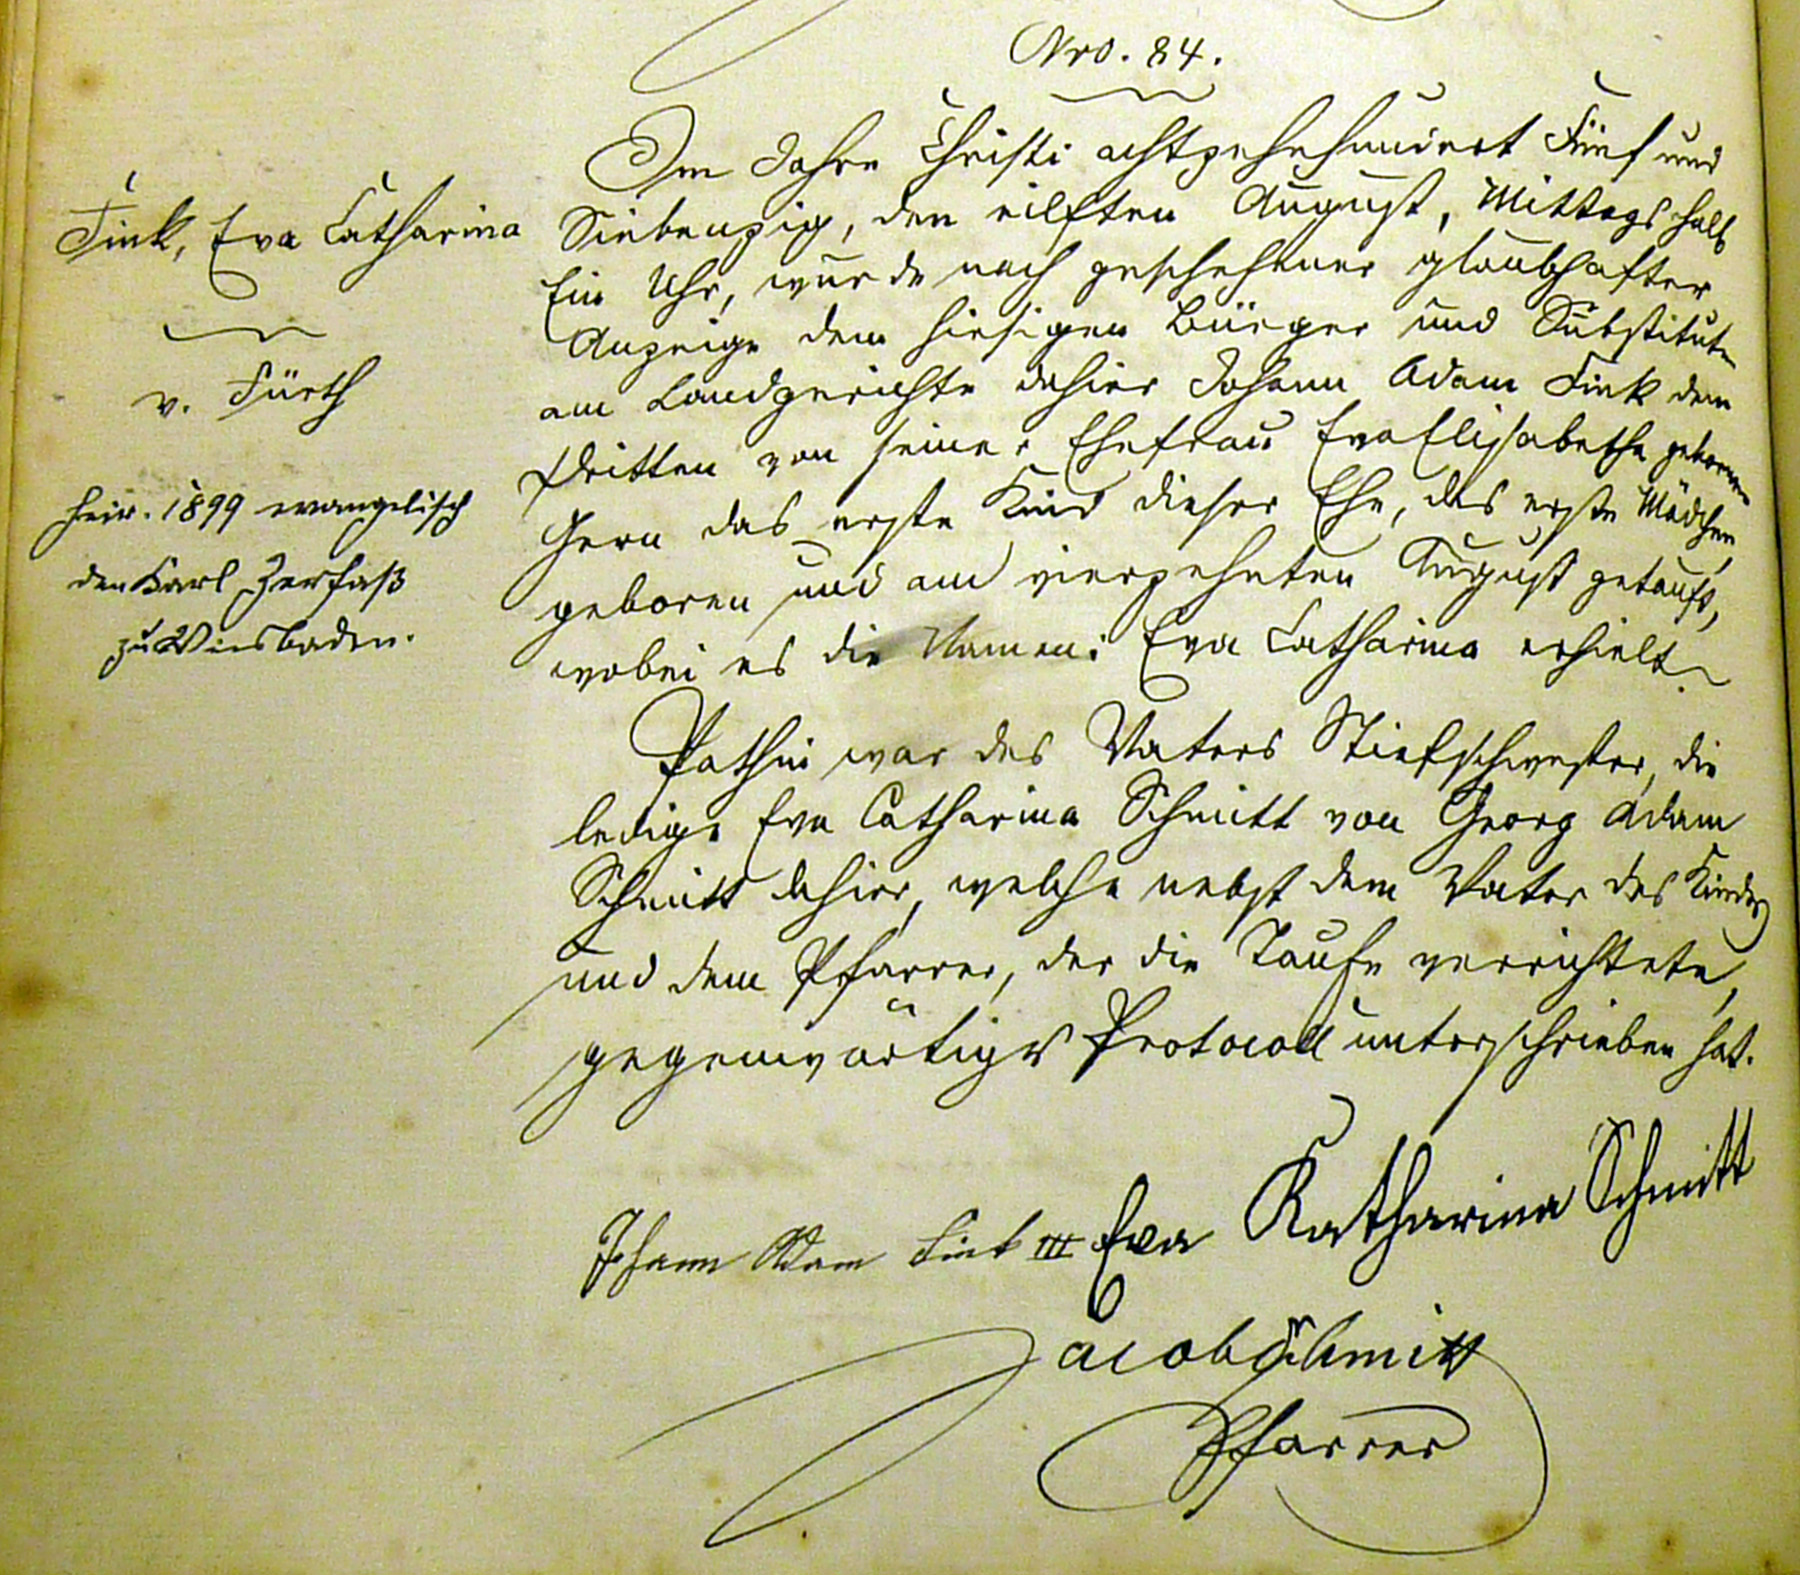 Nro. 84.
Fink, Eva Catharina
v. Fürth
heir. 1899 evangelisch
den Karl Zerfaß
zu Wiesbaden.
Im Jahre Christi achtzehnhundert Fünf und
Siebenzig, den eilften August, Mittags halb
Ein Uhr, wurde nach geschehener glaubhafter
Anzeige dem hiesigen Bürger und Substituten
am Landgerichte dahier Johann Adam Fink dem
Dritten von seiner Ehefrau Eva Elisabetha geborenen
das erste Kind dieser Ehe, das erste Mädchen,
geboren und am vierzehnten August getauft,
wobei es die Namen: Eva Catharina erhielt.
Pathin war des Vaters Stiefschwester, die
ledige Eva Catharina Schmitt von Georg Adam
Schmitt dahier, welche nebst dem Vater des Kindes
und dem Pfarrer, der die Taufe verrichtete,
gegenwärtiges Protocoll unterschrieben hat.
Johann Adam Fink III Eva Katharina Schmitt
Jacob Schmitt
Pfarrer